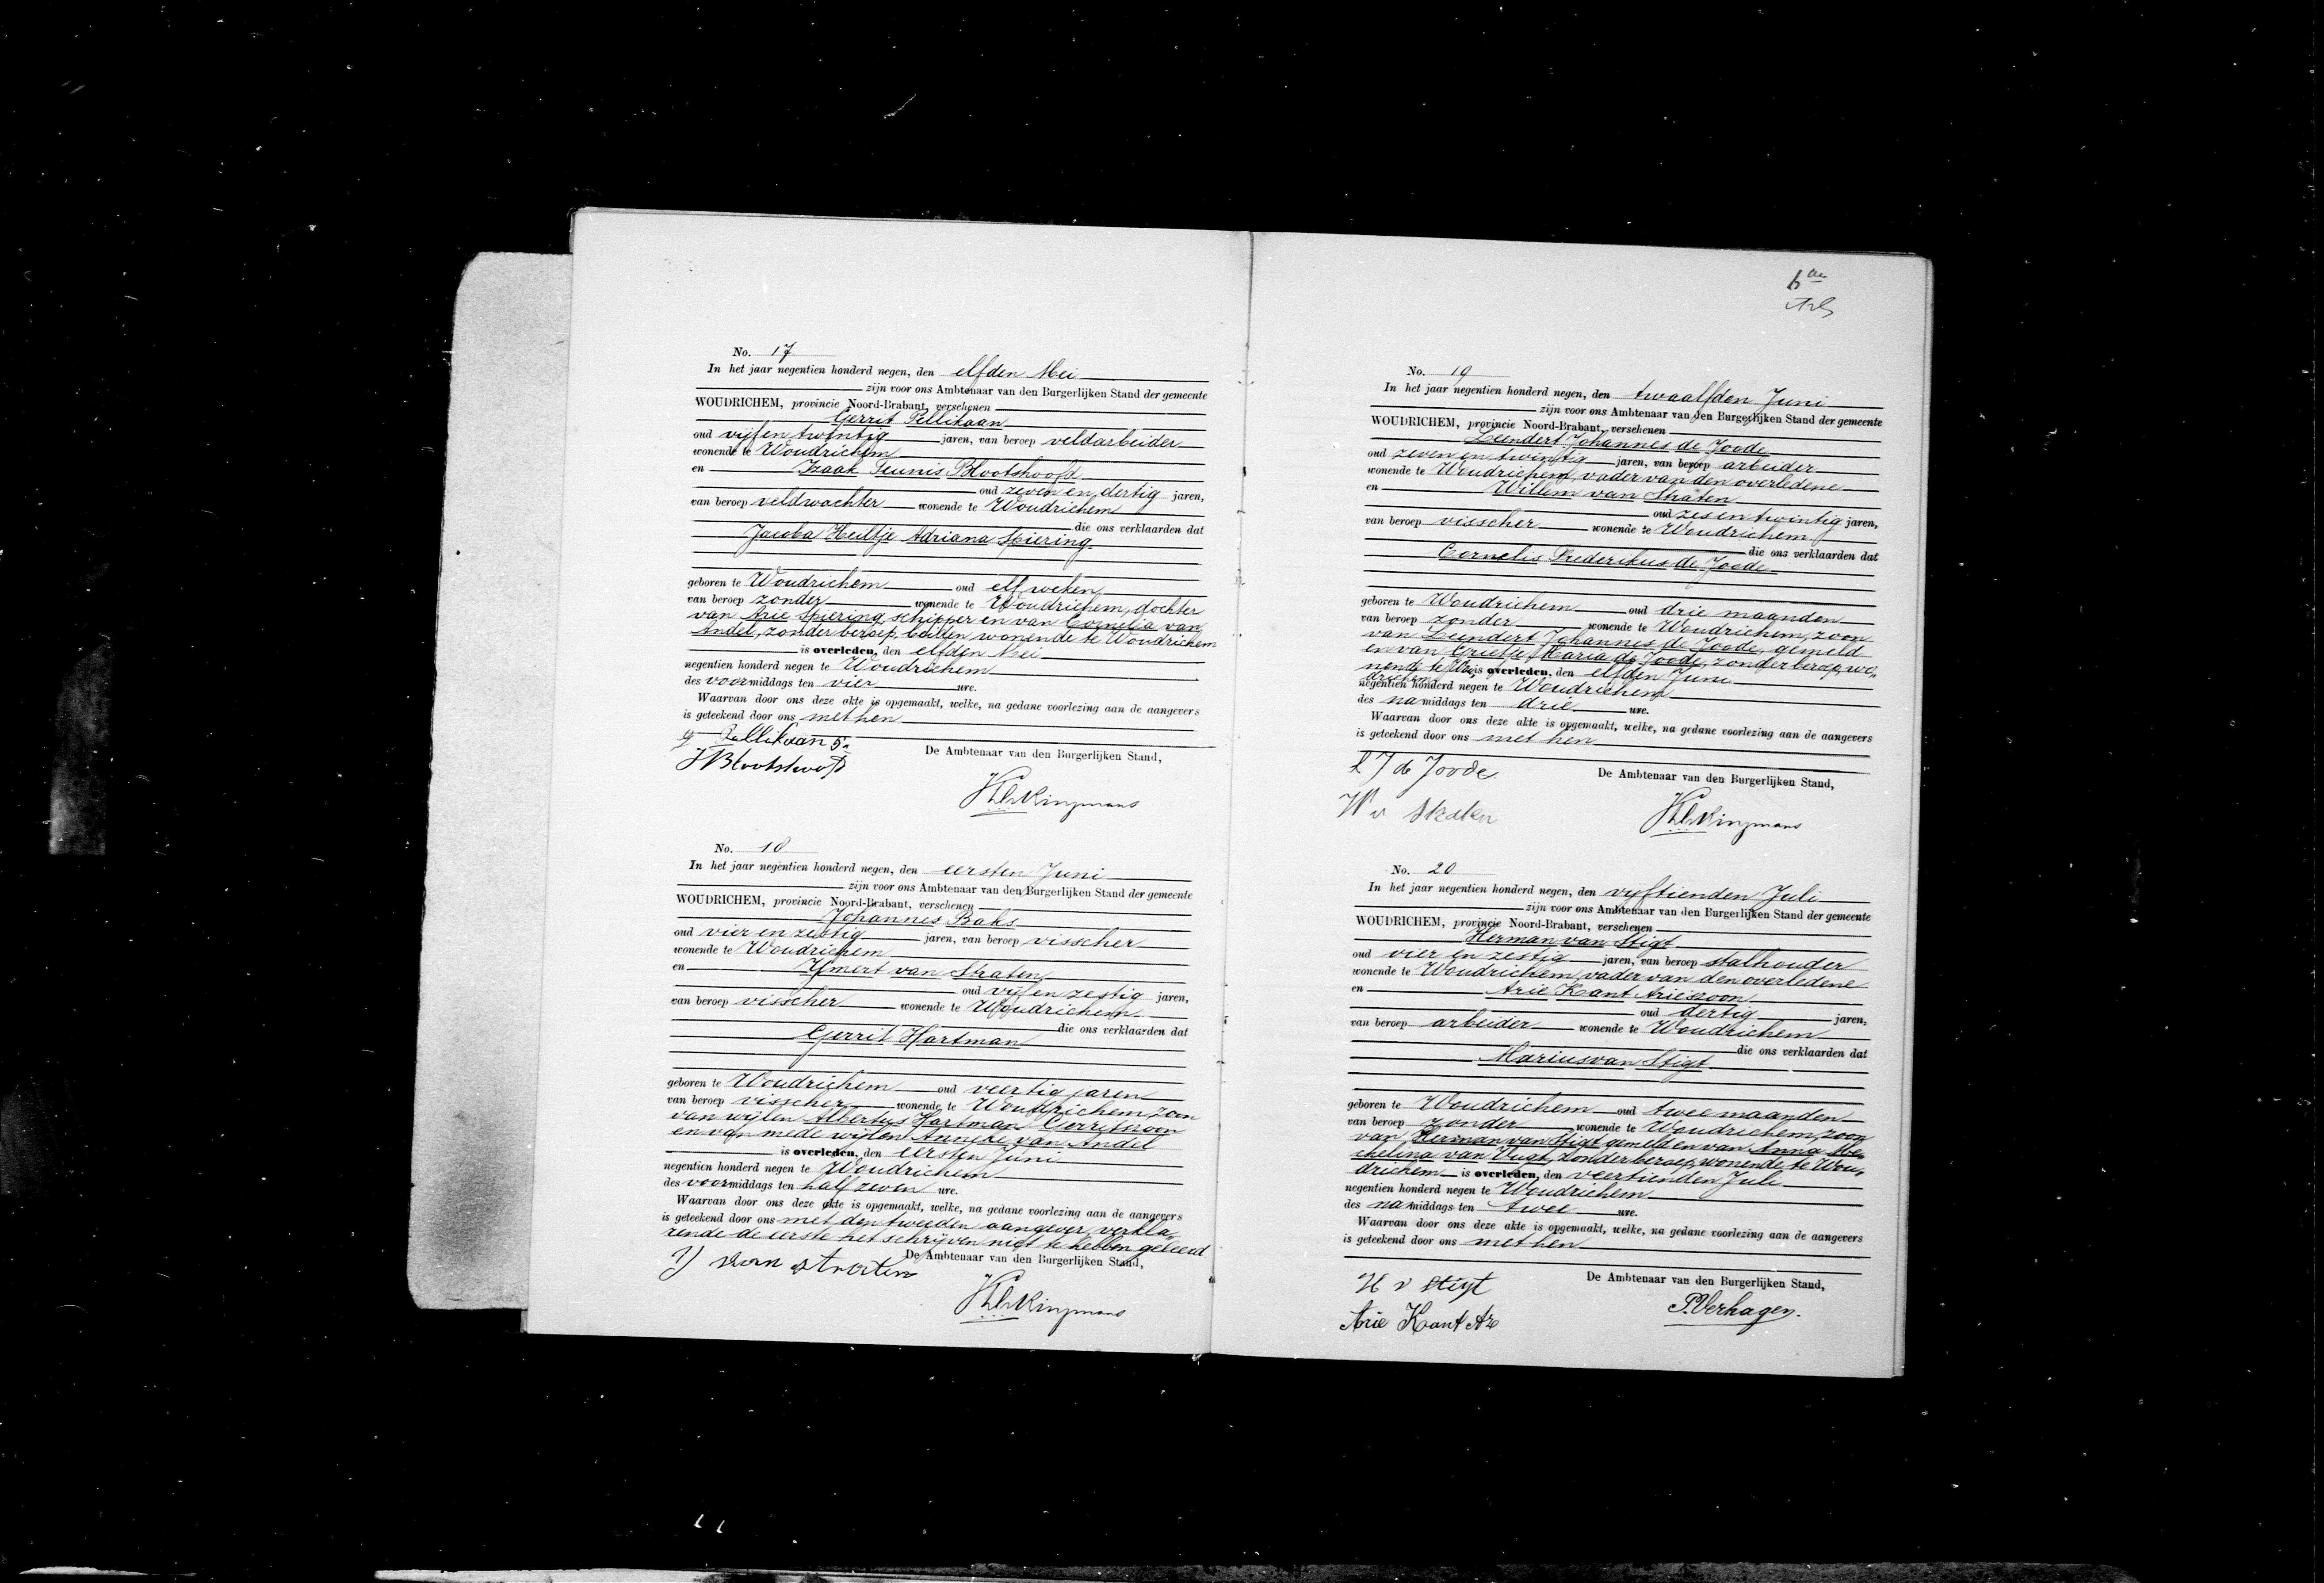 No. 17
In het jaar negentien honderd negen, den elfden Mei
zijn voor ons Ambtenaar van den Burgerlijken Stand der gemeente
WOUDRICHEM, provincie Noord-Brabant, verschenen
Gerrit Pellikaan
oud vijf en twintig jaren, van beroep veldarbeider
wonende te Woudrichem
en Izaak Teunis Blootshooft
oud zeven en dertig jaren,
van beroep veldwachter wonende te Woudrichem
die ons verklaarden dat
Jacoba Heiltje Adriana Spiering
geboren te Woudrichem oud elf weken
van beroep zonder wonende te Woudrichem, dochter
van Arie Spiering, schipper en van Cornelia van
Andel, zonder beroep, beiden wonende te Woudrichem
is overleden, den elfden Mei
negentien honderd negen te Woudrichem
des voormiddags ten vier ure.
Waarvan door ons deze akte is opgemaakt, welke, na gedane voorlezing aan de aangevers
is geteekend door ons met hen
G Pellikaan
De Ambtenaar van den Burgerlijken Stand,
Blootshooft
No. 18
In het jaar negentien honderd negen, den eersten Juni
zijn voor ons Ambtenaar van den Burgerlijken Stand der gemeente
WOUDRICHEM, provincie Noord-Brabant, verschenen
Johannes Baks
oud vier en zestig jaren, van beroep visscher
wonende te Woudrichem
en IJmert van Straten
oud vijf en zestig jaren,
van beroep visscher wonende te Woudrichem
die ons verklaarden dat
Gerrit Hartman
geboren te Woudrichem oud veertig jaren
van beroep visscher wonende te Woudrichem, zoon
van wijlen Albertus Hartman Gerritszoon
en van mede wijlen Anneke van Andel
is overleden, den eersten Juni
negentien honderd negen te Woudrichem
des voormiddags ten half zeven ure.
Waarvan door ons deze akte is opgemaakt, welke, na gedane voorlezing aan de aangevers
is geteekend door ons met den tweeden aangever, verkla-
rende de eerste het schrijven niet te hebben geleerd
De Ambtenaar van den Burgerlijken Stand,
van straten
No. 19
In het jaar negentien honderd negen, den twaalfden Juni
zijn voor ons Ambtenaar van den Burgerlijken Stand der gemeente
WOUDRICHEM, provincie Noord-Brabant, verschenen
Leendert Johannes de Joode
oud zeven en twintig jaren, van beroep arbeider
wonende te Woudrichem, vader van den overledene
en Willem van Straten
oud zes en twintig jaren,
van beroep visscher wonende te Woudrichem
die ons verklaarden dat
Cornelis Frederikus de Joode
geboren te Woudrichem oud drie maanden
van beroep zonder wonende te Woudrichem, zoon
van Leendert Johannes de Joode, gemeld
en van Grietje Maria de Joode, zonder beroep, wo-
nende te Wou is overleden, den elfden Juni
drichem
negentien honderd negen te Woudrichem
des namiddags ten drie ure.
Waarvan door ons deze akte is opgemaakt, welke, na gedane voorlezing aan de aangevers
is geteekend door ons met hen
L J de Joode
De Ambtenaar van den Burgerlijken Stand,
W v Straten
No. 20
In het jaar negentien honderd negen, den vijftienden Juli
zijn voor ons Ambtenaar van den Burgerlijken Stand der gemeente
WOUDRICHEM, provincie Noord-Brabant, verschenen
Herman van Stigt
oud vier en zestig jaren, van beroep stalhouder
wonende te Woudrichem, vader van den overledene
en Arie Kant Arieszoon
oud dertig jaren,
van beroep arbeider wonende te Woudrichem
die ons verklaarden dat
Marius van Stigt
geboren te Woudrichem oud twee maanden
van beroep zonder wonende te Woudrichem, zoon
van Herman van Stigt gemeld en van Anna
van Vugt, zonder beroep, wonende te Wou-
drichem is overleden, den veertienden Juli
negentien honderd negen te Woudrichem
des namiddags ten twee ure.
Waarvan door ons deze akte is opgemaakt, welke, na gedane voorlezing aan de aangevers
is geteekend door ons met hen
H v Stigt
De Ambtenaar van den Burgerlijken Stand,
Arie Kant Az
P. Verhagen.